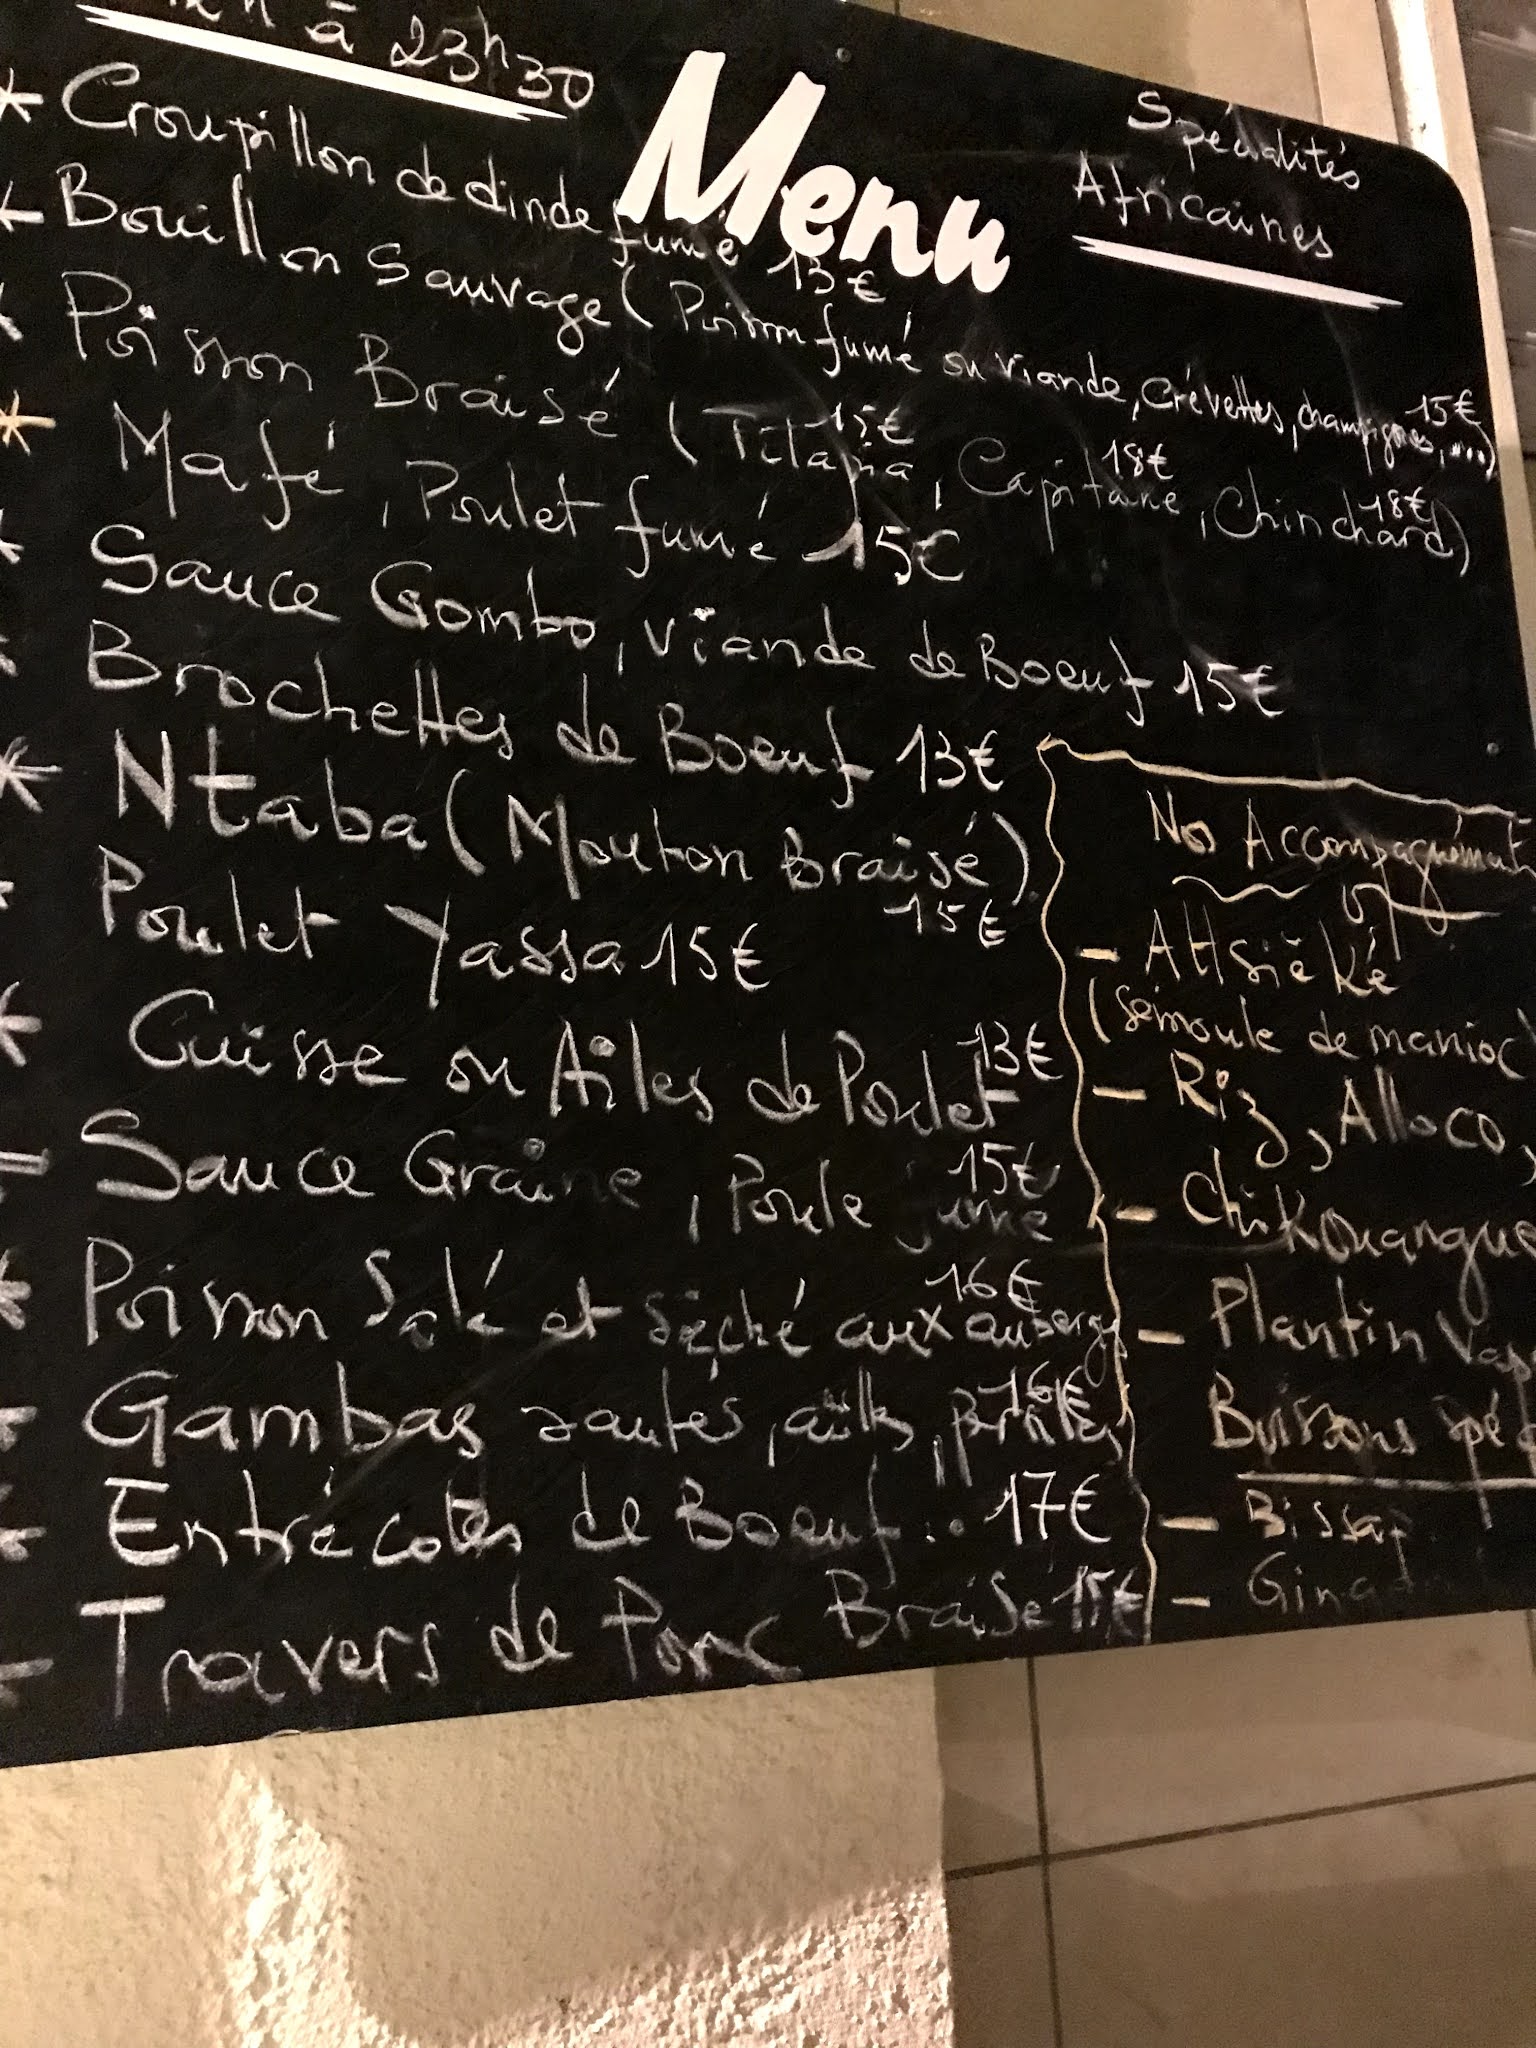 à 23h30
Menu
Spécialités
Africaines
* Croupillon de dinde fumé 13€
* Bouillon Sauvage (Poisson fumé ou viande, crévettes, champignons, ...) 15€
* Poisson Braisé (Tilapia 15€, Capitaine 18€, Chinchard 18€)
* Mafé, Poulet fumé 15€
* Sauce Gombo, viande de Boeuf 15€
* Brochettes de Boeuf 13€
* Ntaba (Mouton Braisé) 15€
* Poulet Yassa 15€
* Cuisse ou Ailes de Poulet 13€
- Sauce Graine, Poule fumé 15€
* Poisson Salé et séché aux auberg 16€
* Gambas sautés, aills, 16€
* Entrécotes de Boeuf : 17€
- Travers de Porc Braisé 15€
Nos Accompagnément
- Attsiéké
(sémoule de manioc)
- Riz, Alloco,
- Chikouangue
- Plantin Vap
Buissons spé
- Bissap
- Gina